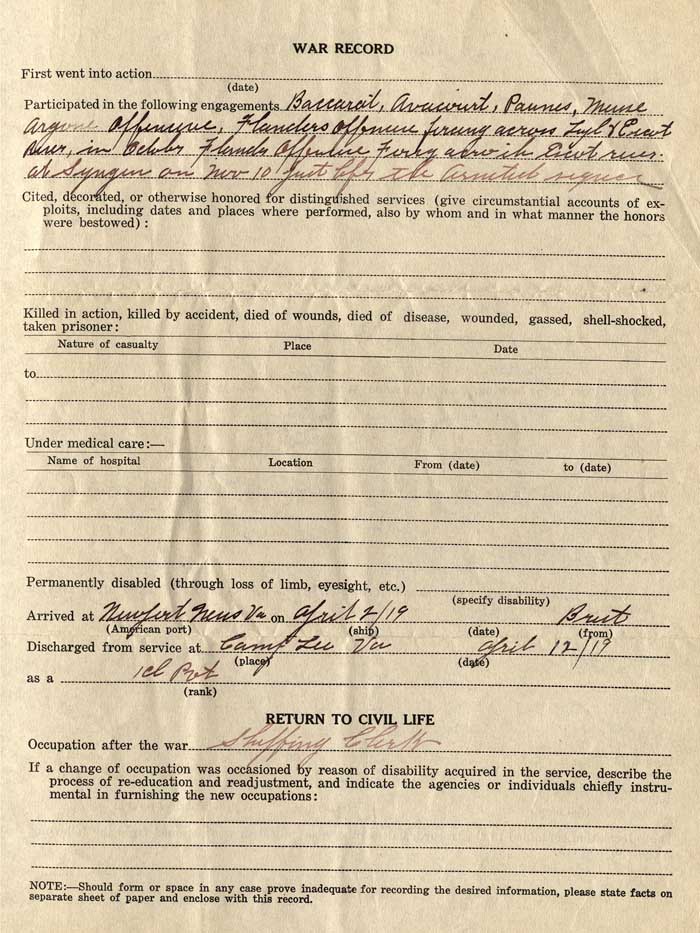 WAR RECORD
First went into action
(date)
Participated in the following engagements Baccarat, Avacourt, Pannes, Meuse
Argone Offensive, Flanders Offensive firing across Lys & Escot
River, in October Flanders Offensive Firing across the Escot river
at Syngen on Nov 10 just before the Armistice signed
Cited, decorated, or otherwise honored for distinguished services (give circumstantial accounts of ex-
ploits, including dates and places where performed, also by whom and in what manner the honors
were bestowed) :
Killed in action, killed by accident, died of wounds, died of disease, wounded, gassed, shell-shocked,
taken prisoner:
Nature of casualty Place Date
to
Under medical care:—
Name of hospital Location From (date) to (date)
Permanently disabled (through loss of limb, eyesight, etc.)
(specify disability)
Arrived at Newport News Va on April 2/19 Brest
(American port) (ship) (date) (from)
Discharged from service at Camp Lee Va April 12/19
(place) (date)
as a 1cl Pvt
(rank)
RETURN TO CIVIL LIFE
Occupation after the war Shipping Clerk
If a change of occupation was occasioned by reason of disability acquired in the service, describe the
process of re-education and readjustment, and indicate the agencies or individuals chiefly instru-
mental in furnishing the new occupations:
NOTE:—Should form or space in any case prove inadequate for recording the desired information, please state facts on
separate sheet of paper and enclose with this record.